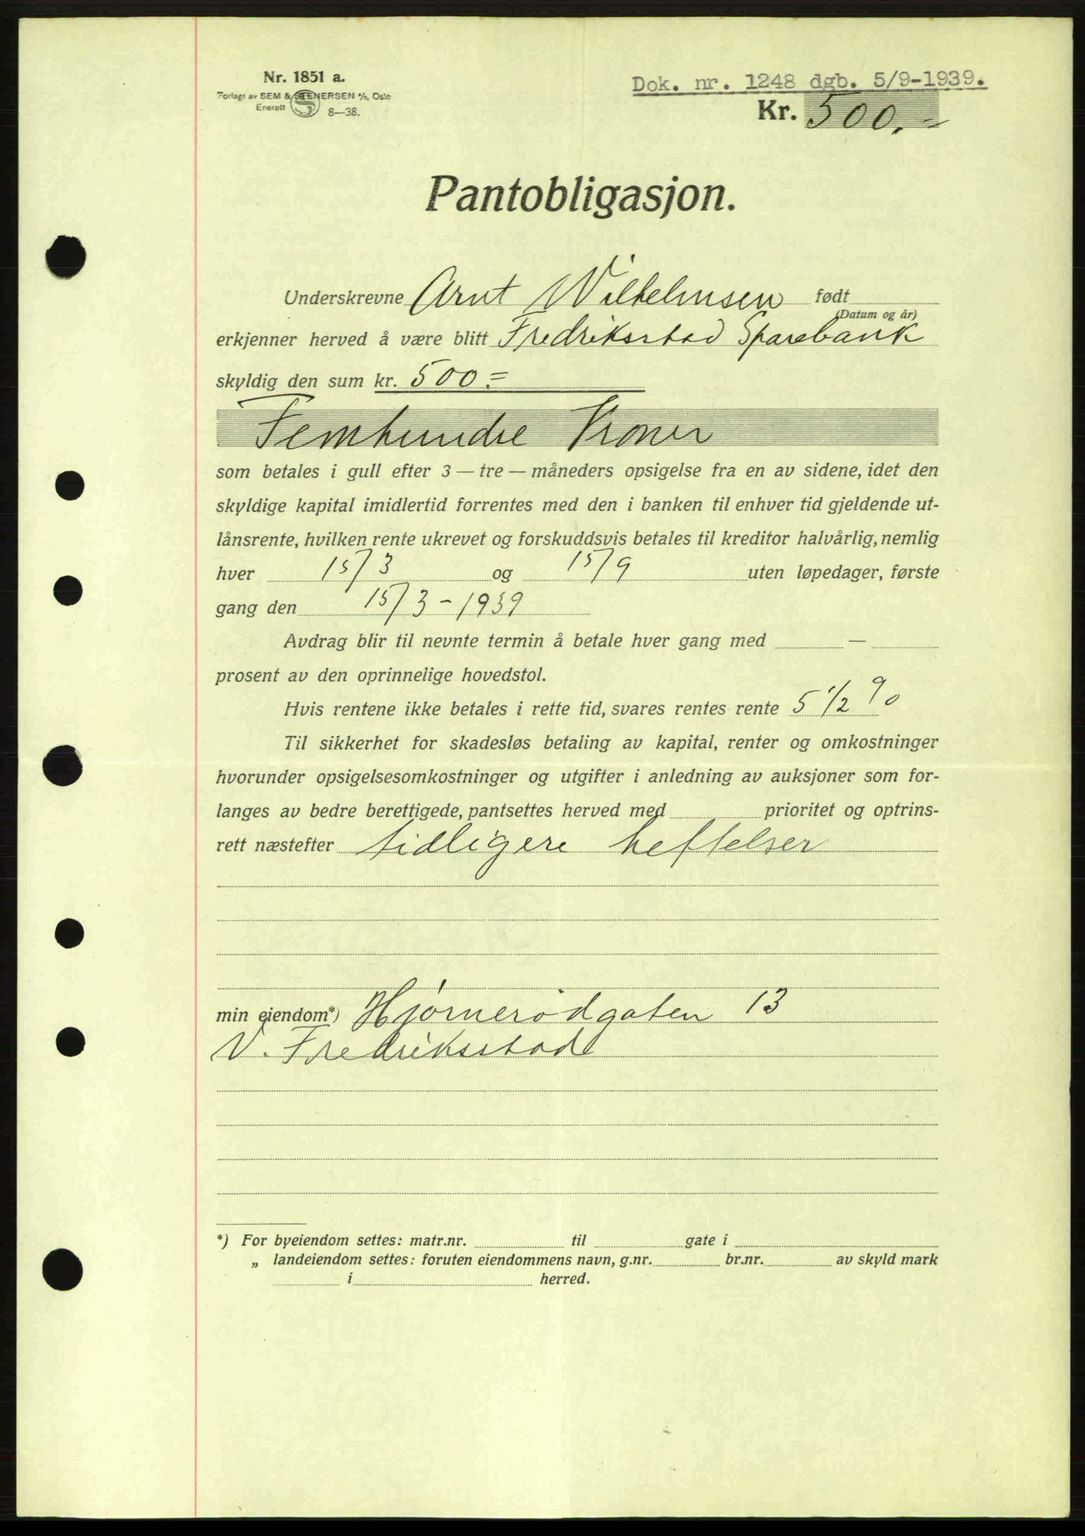 Nr. 1851 a.
Forlagt av SEM & STENERSEN A/S, Oslo
Enerett 8—38.
Dok. nr. 1248 dgb. 5/9-1939.
Kr. 500,-
Pantobligasjon.
Underskrevne Arnt Wilhelmsen født
(Datum og år)
erkjenner herved å være blitt Fredriksstad Sparebank
skyldig den sum kr. 500.=
Femhundre Kroner
som betales i gull efter 3 — tre — måneders opsigelse fra en av sidene, idet den
skyldige kapital imidlertid forrentes med den i banken til enhver tid gjeldende ut-
lånsrente, hvilken rente ukrevet og forskuddsvis betales til kreditor halvårlig, nemlig
hver 15/3 og 15/9 uten løpedager, første
gang den 15/3-1939
Avdrag blir til nevnte termin å betale hver gang med —
prosent av den oprinnelige hovedstol.
Hvis rentene ikke betales i rette tid, svares rentes rente 5 1/2 %
Til sikkerhet for skadesløs betaling av kapital, renter og omkostninger
hvorunder opsigelsesomkostninger og utgifter i anledning av auksjoner som for-
langes av bedre berettigede, pantsettes herved med prioritet og optrins-
rett næstefter tidligere heftelser
min eiendom*) Hjørnerødgaten 13
V. Fredriksstad
*) For byeiendom settes: matr.nr. til gate i
„ landeiendom settes: foruten eiendommens navn, g.nr. br.nr. av skyld mark
i herred.